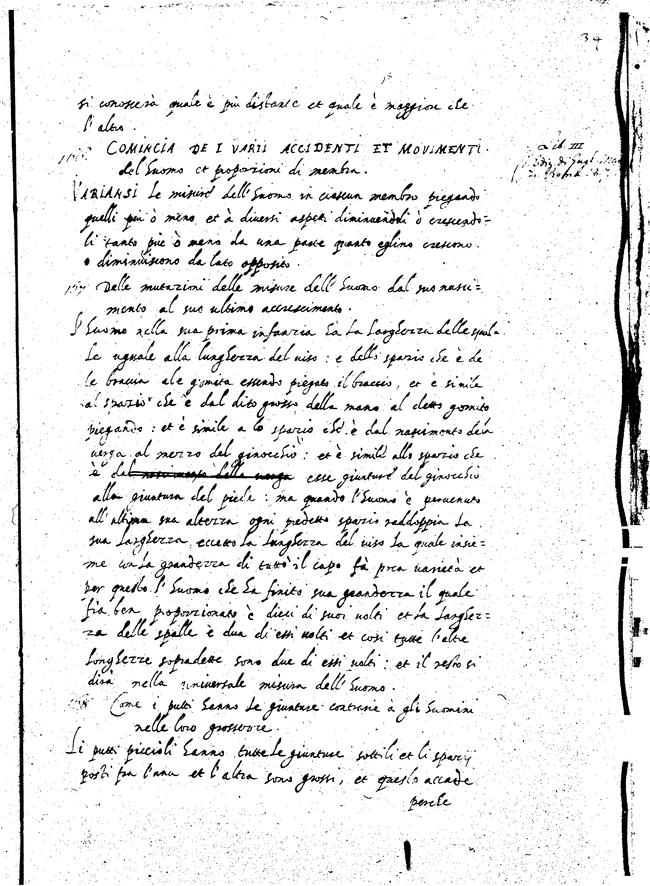 34
si conoscerà quale è più distante et quale è maggiore che
l'altro.
COMINCIA DE I VARII ACCIDENTI ET MOVIMENTI
del huomo et proporzioni di membra.
Lib. III
VARIANSI le misure dell'huomo in ciascun membro piegando
quelli più ò meno, et à diversi aspeti diminuendoli ò crescendo=
li tanto più ò meno da una parte quanto eglino crescono
ò diminuiscono da lato opposito.
157 Delle mutazioni delle misure dell'huomo dal suo nasci=
mento al suo ultimo accrescimento.
L'huomo nella sua prima infanzia ha la larghezza delle spal=
le uguale alla lunghezza del viso: e dello spazio che è da
le braccia a le gomita essendo piegato il braccio, et è simile
al spazio che è dal dito grosso della mano al detto gomito
piegando: et è simile a lo spazio che è dal nascimento dela
verga al mezzo del ginocchio: et è simile allo spazio che
è dal nascimento della verga esse giunture del ginocchio
alla giuntura del piede: ma quando l'huomo è pervenuto
all'altima sua altezza ogni predetto spazio raddoppia la
sua larghezza, eccetto la lunghezza del viso la quale insie=
me con la grandezza di tutto il capo fà poca varietà et
per questo l'huomo che ha finito sua grandezza il quale
sia ben proporzionato è dieci di suoi volti et la larghez=
za delle spalle è dua di essi volti et così tutte l'altre
longhezze sopradette sono due di essi volti: et il resto si
dirà nella universale misura dell'huomo.
158 Come i putti hanno le giunture contrarie à gli huomini
nelle loro grossezze.
Li putti piccioli hanno tutte le giunture sottili et li spazij
posti fra l'una et l'altra sono grossi, et questo accade
perche